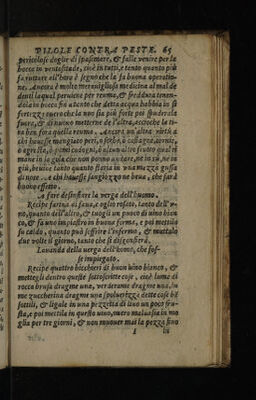 PILOLE CONTRA PESTE. 65
pericolose doglie di spasimare, & falle venire per la
bocca in ventosità, cioè in rutti, e tanto quanto più
fa ruttare all'hora è segno che la fa buona operatio-
ne. Ancora è molto meravigliosa medicina al mal de
denti laqual perviene per reuma, & freddura tenen-
dola in bocca fin a tanto che detta acqua habbia in se
fortezza overo che la non sia più forte poi spuderala
fuora, & di nuovo metterne de l'altra, accioche la ti-
ra ben fora quella reuma. Ancora un'altra virtù a
chi havesse mangiato peri, o sorbe, o castagne, cornie,
o agresta, o pomi codogni, o alcun altro frutto qual ri
mane in la gola che non ponno andare, ne in sù, ne in
giù, bevine tanto quanto staria in una mezza gussa
di nose. A chi havesse sangiozzo ne beva, che farà
buono effetto.
A fare desinfiare la verga dell'huomo.
Recipe farina di fava, e oglio rosato, tanto dell'u-
no, quanto dell'altro, & tuogli un puoco di vino bian
co, & fa uno impiastro in buona forma, e poi mettilo
su caldo, quanto può soffrire l'infermo, & mettilo
due volte il giorno, tanto che si disgonfierà.
Lavanda della verga dell'homo, che fos-
se impiagato.
Recipe quattro bicchieri di buon vino bianco, &
mettegli dentro queste sottoscritte cose, cioè lume di
rocca brusa dragme una, verderame dragme una, in
me zuccherina dragme una spolverizza dette cose be
sottili, & ligale in una pezzetta di lino un poco fru-
sta, e poi mettila in questo vino, overo malvasia in mo
glia per tre giorni, & non muover mai la pezza fino
I iii